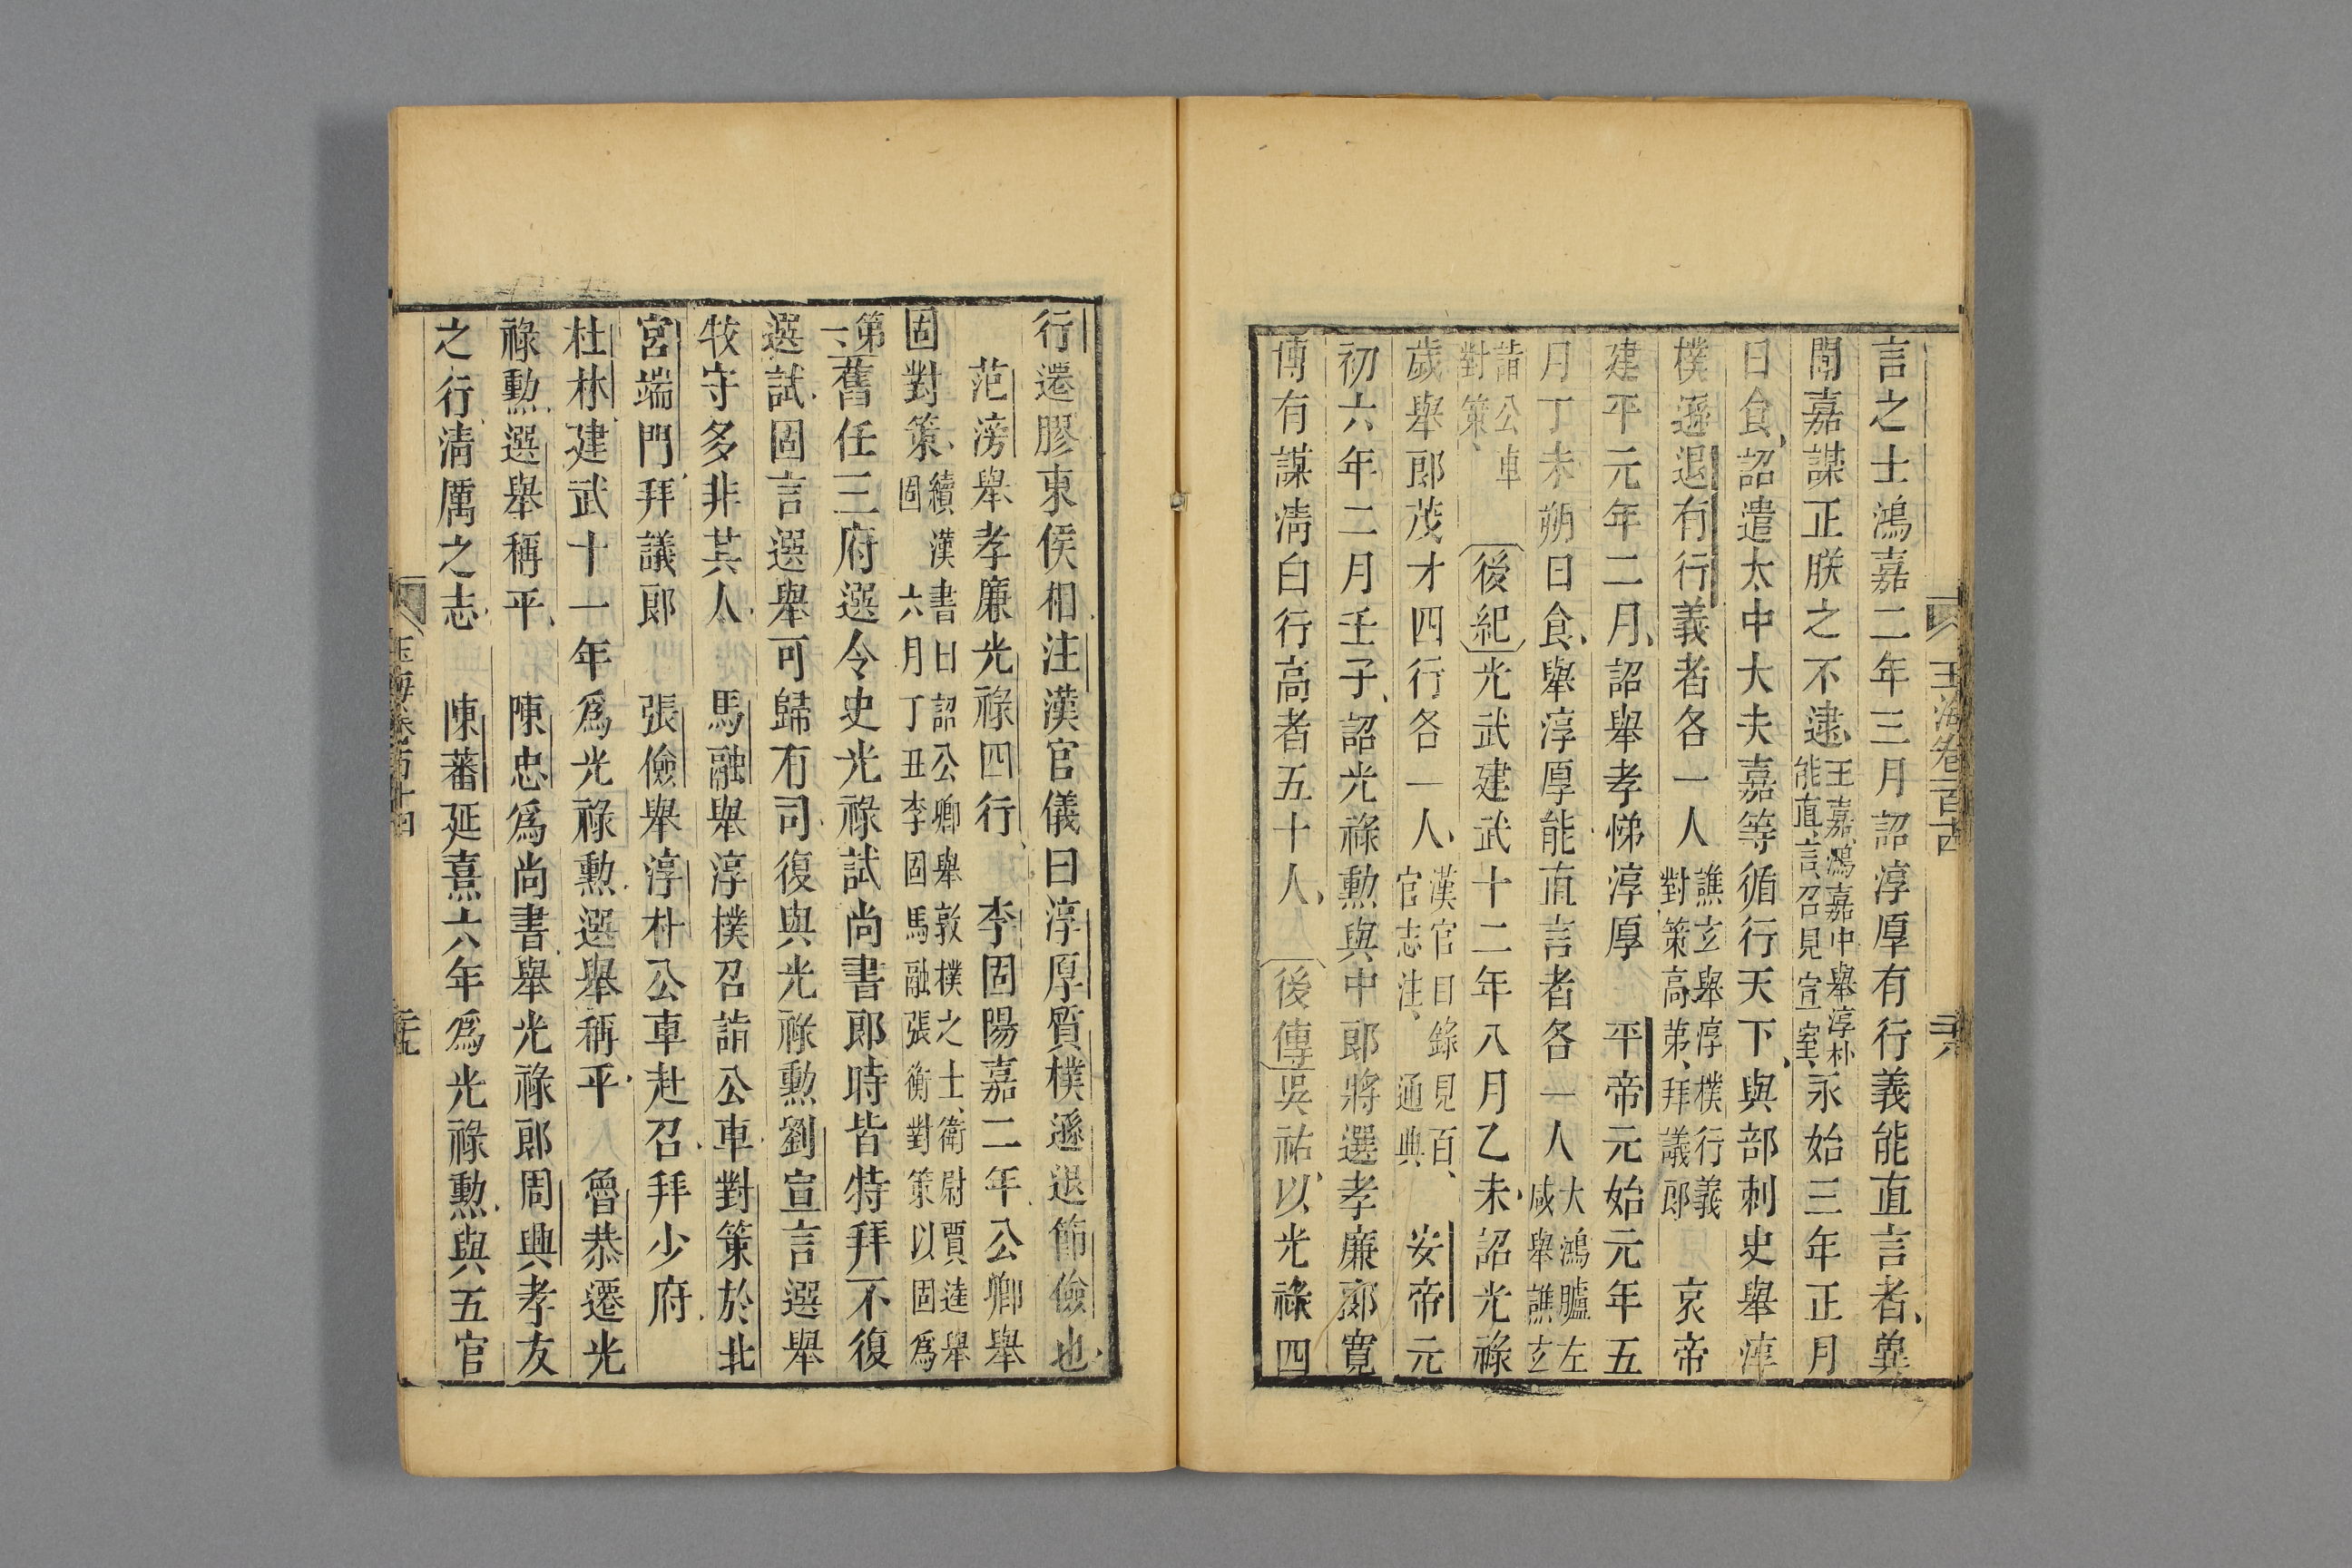 玉海卷百十四
言之士鴻嘉二年三月詔淳厚有行義能直言者兾
聞嘉謀正朕之不逮王嘉鴻嘉中舉淳朴能直言召見宣室永始三年正月
日食詔遣太中大夫嘉等循行天下與部刺史舉淳
樸遜退有行義者各一人譙玄舉淳樸行義對策高第拜議郎 哀帝
建平元年二月詔舉孝悌淳厚 平帝元始元年五
月丁未朔日食舉淳厚能直言者各一人大鴻臚左咸舉譙玄
詣公車對策 後紀光武建武十二年八月乙未詔光祿
歲舉郎茂才四行各一人漢官目錄見百官志注通典 安帝元
初六年二月壬子詔光祿勲與中郎將選孝廉郎寛
博有謀清白行高者五十人 後傳吳祐以光祿四
行遷膠東侯相注漢官儀曰淳厚質樸遜退節儉也
范滂舉孝廉光祿四行 李固陽嘉二年公卿舉
固對策續漢書曰詔公卿舉敦樸之士衛尉賈逵舉固 六月丁丑李固馬融張衡對策以固爲
第一舊任三府選令史光祿試尚書郎時皆特拜不復
選試固言選舉可歸有司復與光祿勲劉宣言選舉
牧守多非其人 馬融舉淳樸召詣公車對策於北
宮端門拜議郎 張儉舉淳朴公車赴召拜少府
杜林建武十一年爲光祿勲選舉稱平 魯恭遷光
祿勲選舉稱平 陳忠爲尚書舉光祿郎周興孝友
之行清厲之志 陳蕃延熹六年爲光祿勲與五官
玉海卷百十四